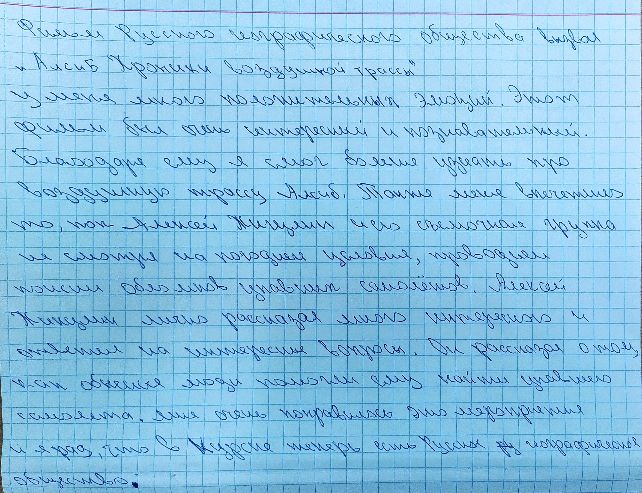 Фильм Русского географического общества вызвал
„Алсиб Хроники воздушной трассы"
у меня много положительных эмоций. Этот
фильм был очень интересный и познавательный.
Благодаря ему я смог больше узнать про
воздушную трассу Алсиб. Также меня впечатлило
то, как Алексей и его съемочная группа
не смотря на погодные условия, проводили
поиски обломков упавших самолётов. Алексей
лично рассказал много интересного и
ответил на интересные вопросы. Он рассказал о том,
как обычные люди помогли ему найти упавшего
самолёта. Мне очень понравилось это мероприятие
и я рад, что в теперь есть Русское географическое
общество.